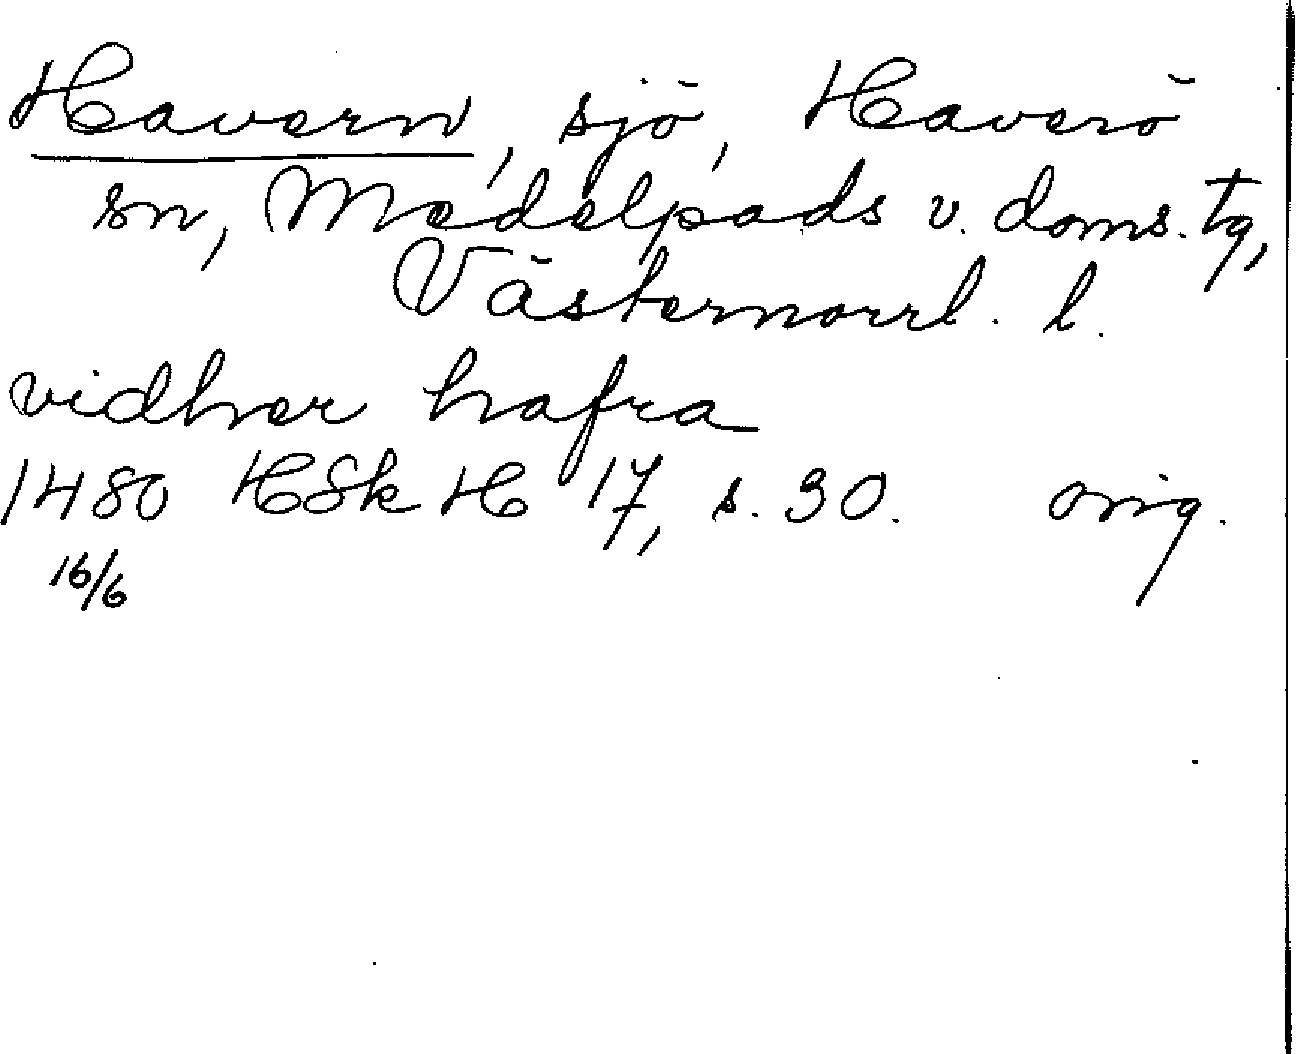 Havern, sjö, Haverö
sn, Medelpads v. doms. tg,
Västernorrl. l.
vidher hafra
1480 HSkH 17, s. 30. orig.
16/6